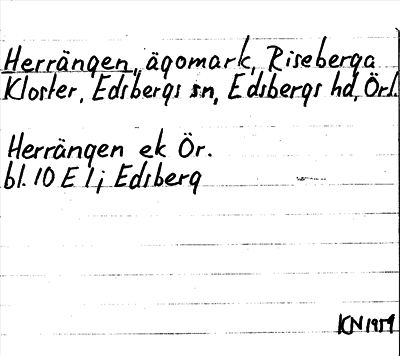 Herrängen, ägomark, Riseberga
Kloster, Edsbergs sn, Edsbergs hd, Örl.
Herrängen ek Ör.
bl. 10 E 1 j Edsberg
KN 1959